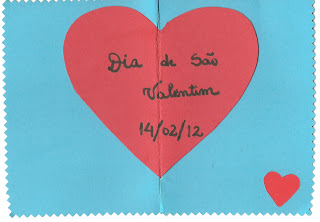 Dia de São
Valentim
14/02/12